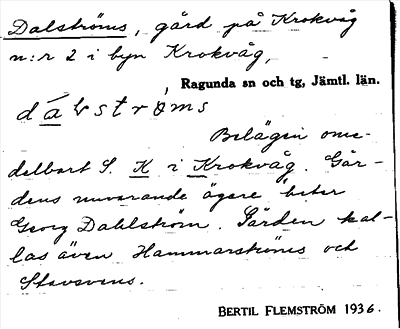 Dalströms, gård på Krokvåg
n:r 2 i byn Krokvåg,
Ragunda sn och tg, Jämtl. län.
dálströ̀ms
Belägen ome-
delbart S. K i Krokvåg. Går-
dens nuvarande ägare heter
Georg Dahlström. Gården kal-
las även Hammarströms och
Stavsvens.
BERTIL FLEMSTRÖM 1936.